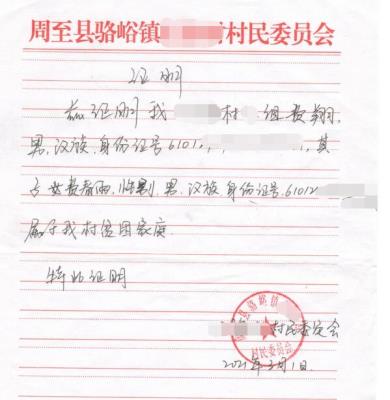 周至县骆峪镇 村民委员会
证明
兹证明我 村 组费翔,
男,汉族,身份证号6101 ,其
子费春雨, 男,汉族,身份证号61012
属于我村贫困家庭
特此证明
村民委员会
2021年3月1日
县骆峪镇
村民委员会